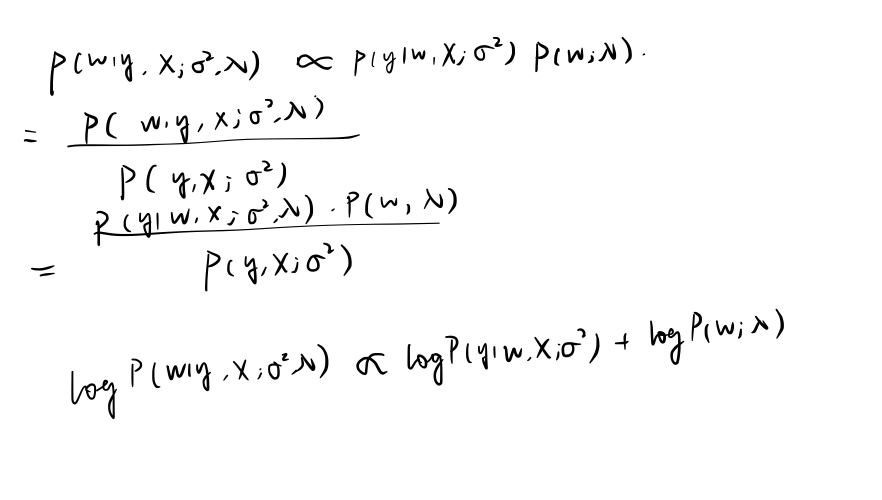 P(w|y, X; σ², λ) ∝ P(y|w, X; σ²) P(w; λ).
= P( w, y, X; σ², λ)
P( y, X; σ²)
= P(y|w, X; σ², λ) · P(w, λ)
P(y, X; σ²)
log P(w|y, X; σ², λ) ∝ log P(y|w, X; σ²) + log P(w; λ)